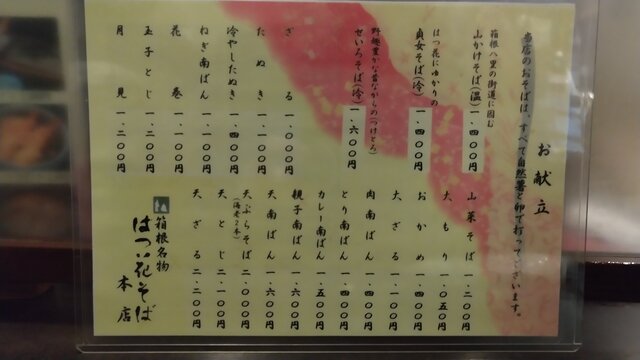 お献立
当店のおそばは、すべて自然薯と卵で打ってございます。
箱根八里の街道に因む
山かけそば(温)一、四〇〇円
はつ花にゆかりの
貞女そば(冷)一、四〇〇円
野趣豊かな昔ながらの(つけとろ)
せいろそば(冷)一、六〇〇円
ざる 一、〇〇〇円
たぬき 一、一〇〇円
冷やしたぬき 一、四〇〇円
ねぎ南ばん 一、一〇〇円
花巻 一、一〇〇円
玉子とじ 一、二〇〇円
月見 一、二〇〇円
山菜そば 一、二〇〇円
大もり 一、〇五〇円
大ざる 一、一〇〇円
おかめ 一、四〇〇円
肉南ばん 一、四〇〇円
とり南ばん 一、四〇〇円
カレー南ばん 一、五〇〇円
親子南ばん 一、六〇〇円
天南ばん 一、六〇〇円
天ぷらそば 二、〇〇〇円
(海老2本)
天とじ 二、一〇〇円
天ざる 二、二〇〇円
箱根名物
はつ花そば
本店